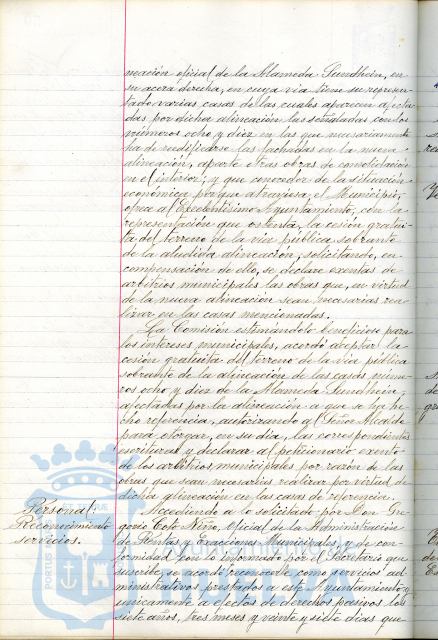 neación oficial de la Alameda Sundhein, en
su acera derecha, en cuya via tiene su represen-
tado varias casas de las cuales aparecen afecta-
das por dicha alineación las señaladas con los
números ocho y diez en las que necesariamente
ha de reedificarse las fachadas en la nueva
alineación, aparte otras obras de consolidación
en el interior; y que conocedor de la situación
económica porque atraviesa el Municipio,
ofrece al Excelentísimo Ayuntamiento, con la
representación que ostenta, la cesión gratui-
ta del terreno de la via pública sobrante
de la aludida alineación, solicitando, en
compensación de ello, se declare exentas de
arbitrios municipales las obras que, en virtud
de la nueva alineación sean necesarias rea-
lizar en las casas mencionadas.
La Comisión estimándolo beneficioso para
los intereses municipales, acordó aceptar la
cesión gratuita del terreno de la via pública
sobrante de la alineación de las casas núme-
ros ocho y diez de la Alameda Sundhein,
afectadas por la alineación a que se ha he-
cho referencia, autorizando al Señor Alcalde
para otorgar, en su dia, las correspondientes
escrituras y declarar al peticionario exento
de los arbitrios municipales por razón de las
obras que sean necesarias realizar por virtud de
dicha alineación en las casas de referencia.
Personal:
Reconocimiento
servicios.
Accediendo a lo solicitado por Don Gre-
gorio Coto Niño, Oficial de la Administración
de Rentas y Exacciones Municipales y de con-
formidad con lo informado por el Secretario que
suscribe, se acordó reconocerle como servicios ad-
ministrativos prestados a este Ayuntamiento y
únicamente a efectos de derechos pasivos los
siete años, tres meses y veinte y siete dias que